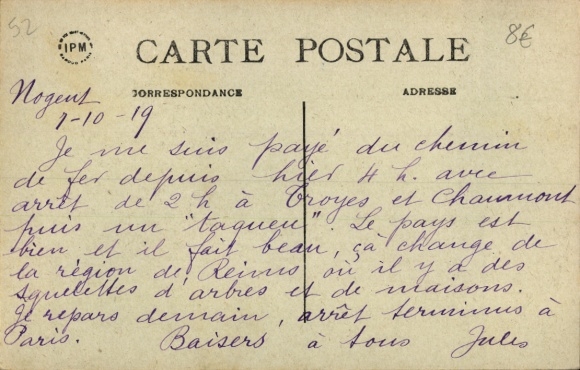 52
8€
IPM
CARTE POSTALE
CORRESPONDANCE
ADRESSE
Nogent
7-10-19
Je me suis payé du chemin
de fer depuis hier 4 h. avec
arrêt de 2 h à Troyes et Chaumont
puis un "tagueu". Le pays est
bien et il fait beau, çà change de
la région de Reims où il y a des
squelettes d'arbres et de maisons.
Je repars demain, arrêt terminus à
Paris. Baisers à tous Jules